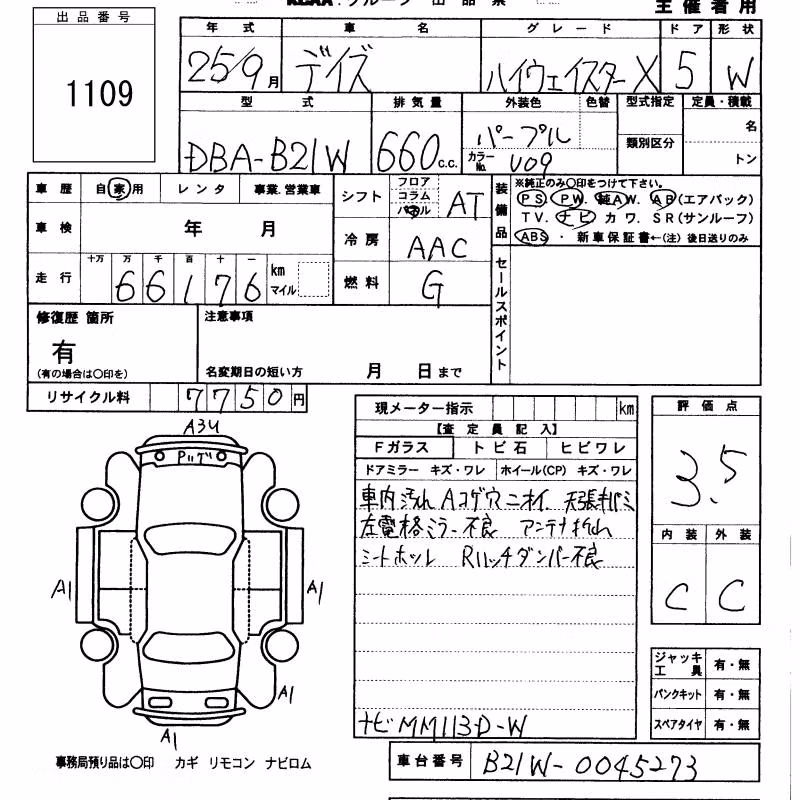 グループ 出品票
主催者用
出品番号
1109
年式 車名 グレード ドア 形状
25/9月 デイズ ハイウェイスターX 5 W
型式 排気量 外装色 色替 型式指定 定員・積載
DBA-B21W 660c.c. パープル 類別区分 名
カラーNo. V09 トン
車歴 自家用 レンタ 事業.営業車
車検 年 月
走行 十万 万 千 百 十 一
66176 km マイル
シフト フロア コラム パネル AT
冷房 AAC
燃料 G
装備品
※純正のみ○印をつけて下さい。
PS. PW. 純AW. AB(エアバック)
TV. ナビ カワ. SR(サンルーフ)
ABS ・ 新車保証書←(注) 後日送りのみ
セールスポイント
修復歴 箇所
有
(有の場合は○印を)
注意事項
名変期日の短い方 月 日まで
リサイクル料 7750円
現メーター指示 km
【査定員記入】
Fガラス トビ石 ヒビワレ
ドアミラー キズ・ワレ ホイール(CP) キズ・ワレ
車内汚れ Aコゲ穴 ニオイ 天張
左電格ミラー不良 アンテナ折れ
シートホツレ Rハッチダンパー不良
ナビMM113D-W
評価点
3.5
内装 外装
C C
ジャッキ工具 有・無
パンクキット 有・無
スペアタイヤ 有・無
A3U
A1
A1
A1
A1
事務局預り品は○印 カギ リモコン ナビロム
車台番号 B21W-0045273